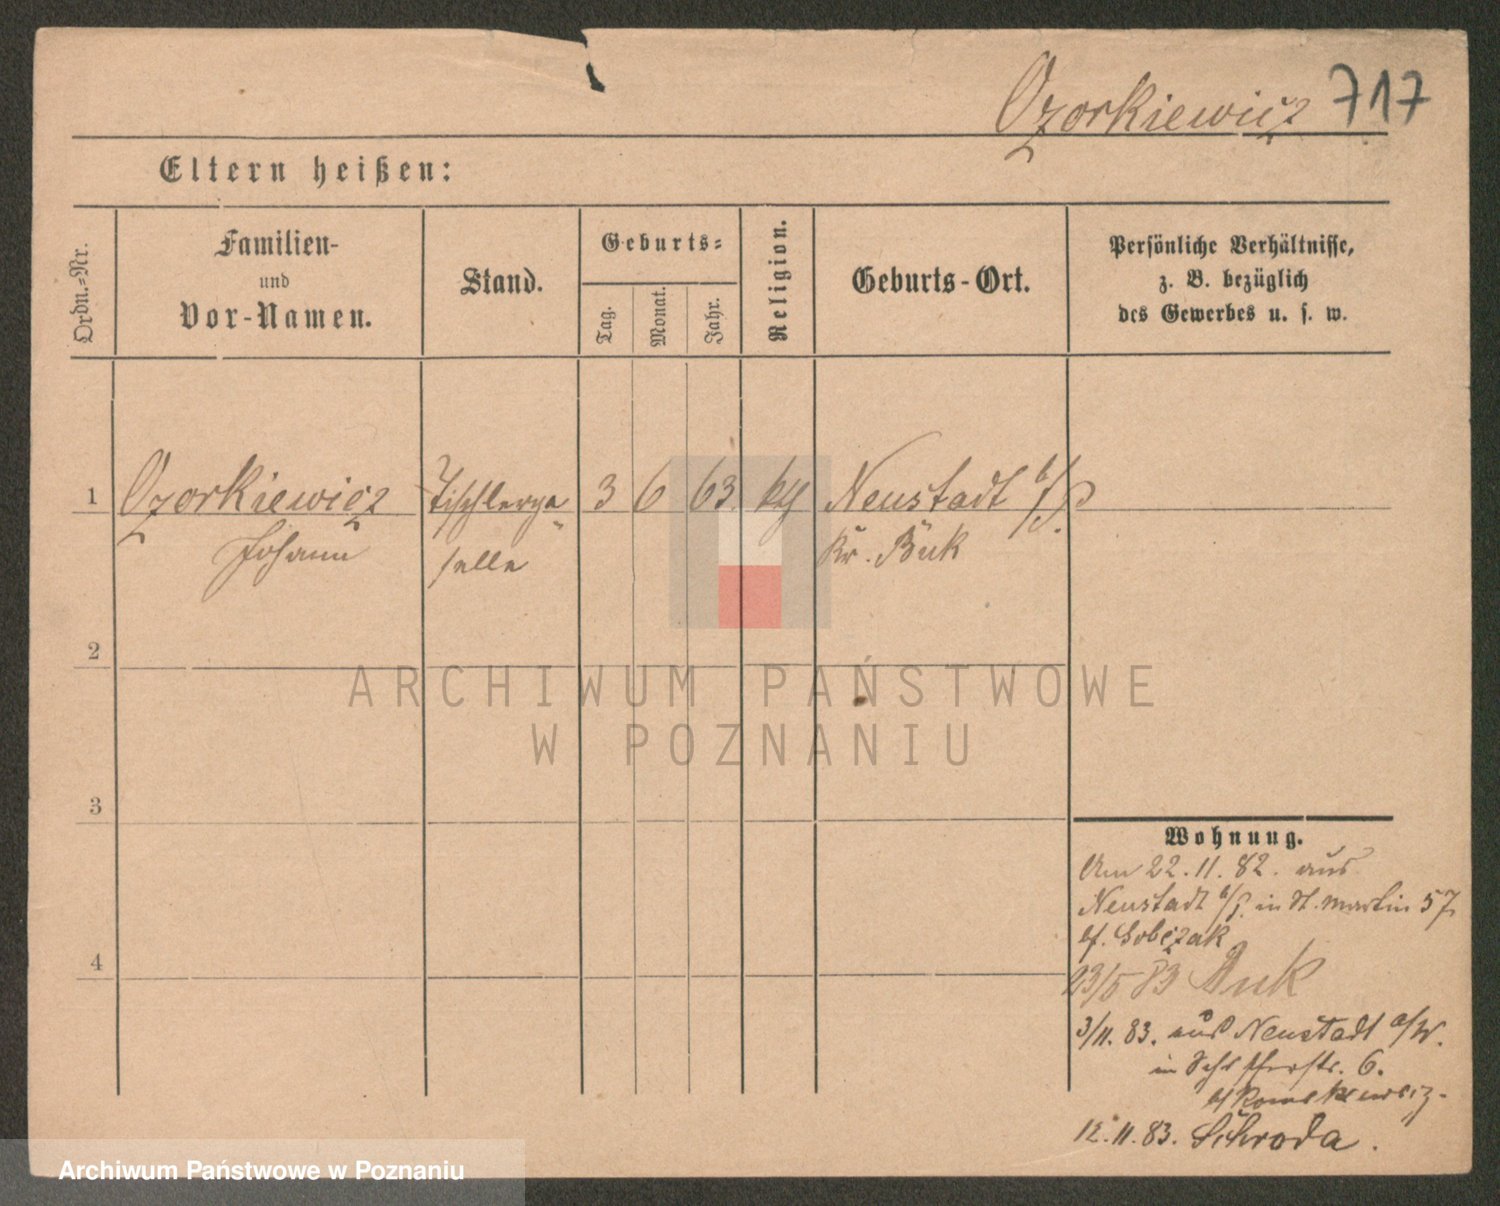 Ozorkiewicz 717
Eltern heißen:
Ordn.-Nr.
Familien-
und
Vor-Namen.
Stand.
Geburts-
Tag.
Monat.
Jahr.
Religion.
Geburts-Ort.
Persönliche Verhältnisse,
z. B. bezüglich
des Gewerbes u. s. w.
1 Ozorkiewicz Tischlerge 3 6 63. kth Neustadt b/P.
Johann selle Kr. Buk
2
3
4
Wohnung.
Am 22.11.82. aus
Neustadt b/P. in St. Martin 57
bf. Sobczak
23/5 83 Buk
3/11.83. aus Neustadt a/W.
in 6.
12.11.83. Schroda.
ARCHIWUM PAŃSTWOWE
W POZNANIU
Archiwum Państwowe w Poznaniu